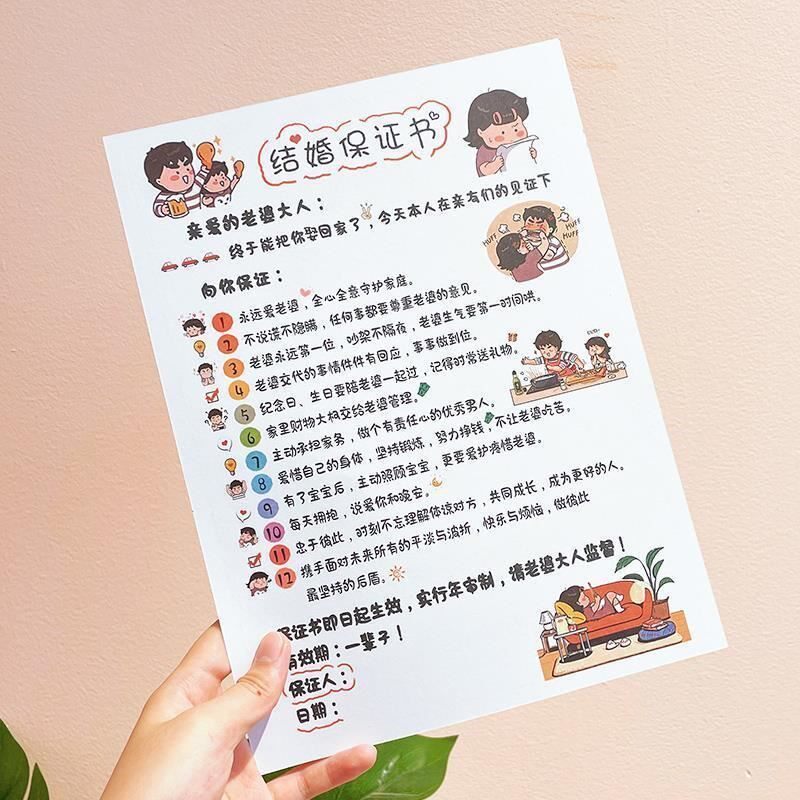 结婚保证书
亲爱的老婆大人：
终于能把你娶回家了，今天本人在亲友们的见证下
向你保证：
HUFF
HUFF
HUFF
1 永远爱老婆，全心全意守护家庭。
2 不说谎不隐瞒，任何事都要尊重老婆的意见。
3 老婆永远第一位，吵架不隔夜，老婆生气要第一时间哄。
4 老婆交代的事情件件有回应，事事做到位。
5 纪念日、生日要陪老婆一起过，记得时常送礼物。
6 家里财物大权交给老婆管理。
7 主动承担家务，做个有责任心的优秀男人。
8 爱惜自己的身体，坚持锻炼，努力挣钱，不让老婆吃苦。
9 有了宝宝后，主动照顾宝宝，更要爱护疼惜老婆。
10 每天拥抱，说爱你和晚安。
11 忠于彼此，时刻不忘理解体谅对方，共同成长，成为更好的人。
12 携手面对未来所有的平淡与波折，快乐与烦恼，做彼此
最坚持的后盾。
保证书即日起生效，实行年审制，请老婆大人监督！
有效期：一辈子！
保证人：
日期：